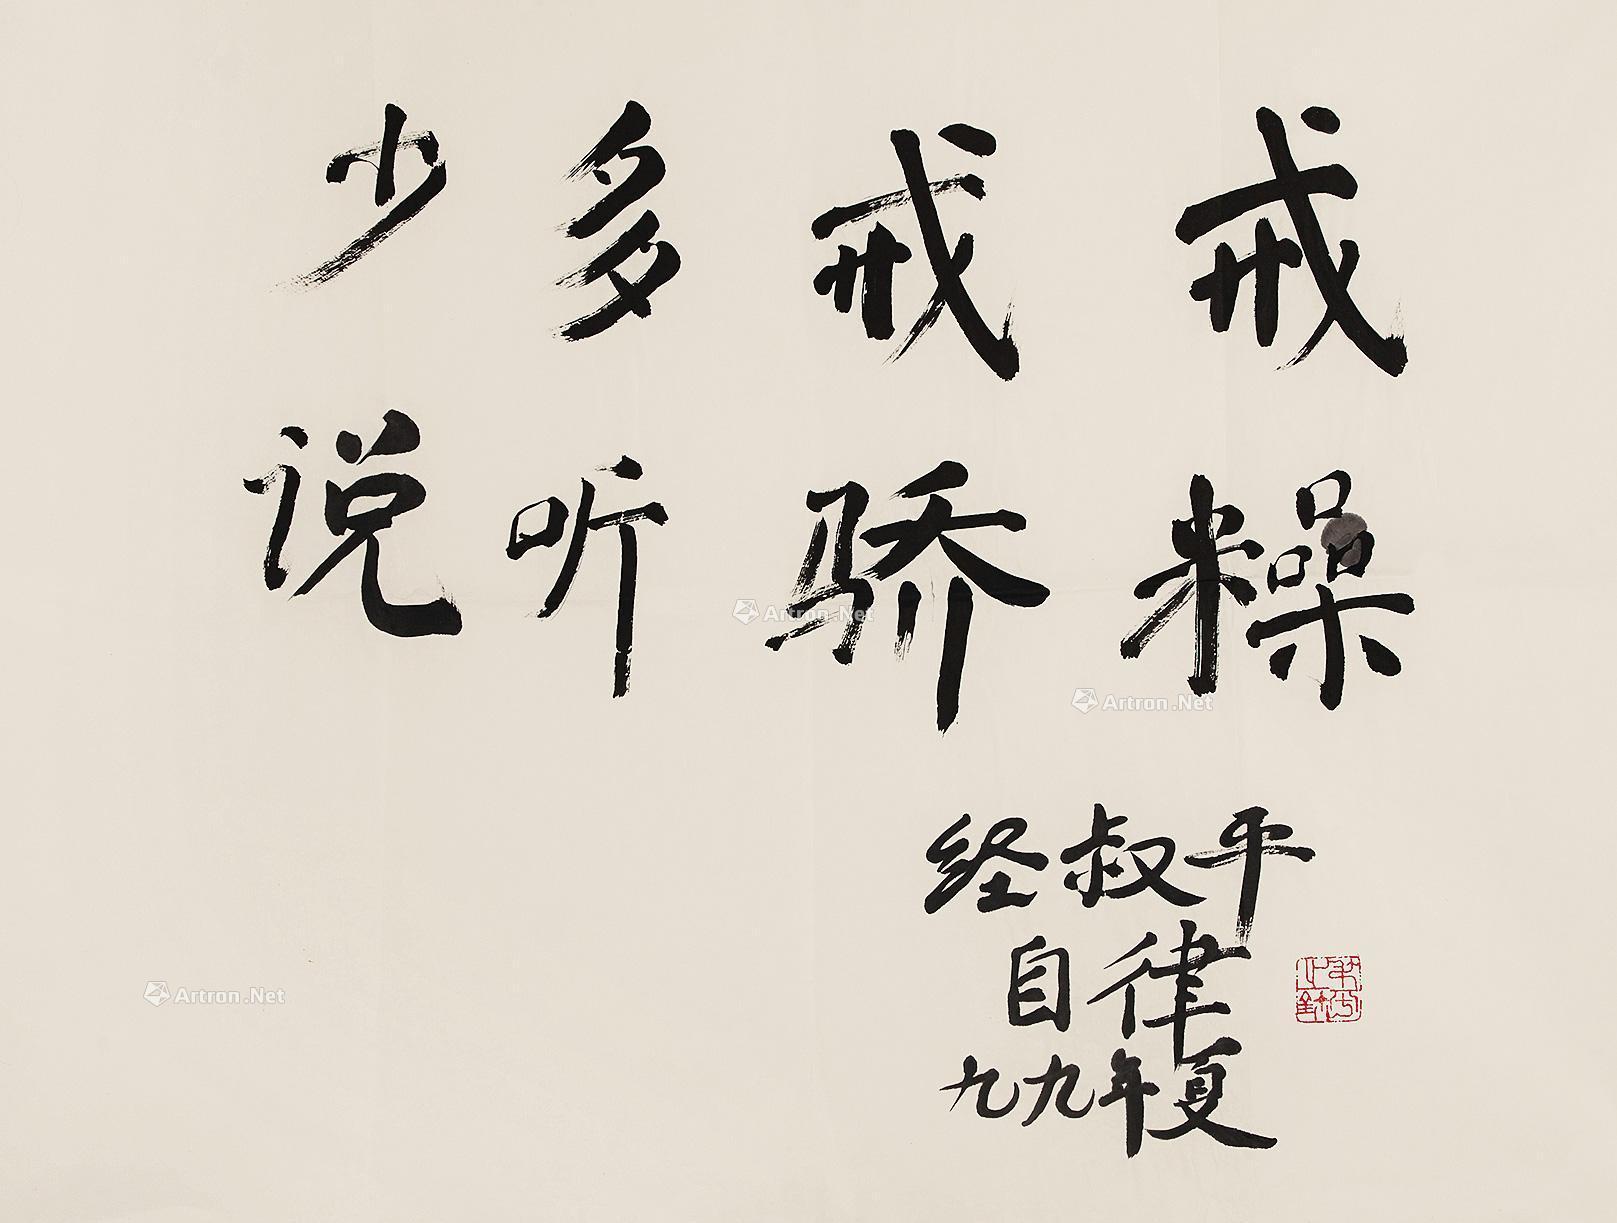 戒糙
戒骄
多听
少说
经叔平
自律
九九年夏
Artron.Net
Artron.Net
Artron.Net